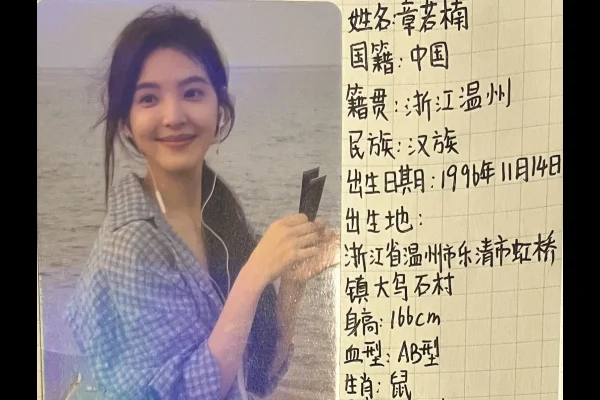 姓名:章若楠
国籍:中国
籍贯:浙江温州
民族:汉族
出生日期:1996年11月14日
出生地:
浙江省温州市乐清市虹桥
镇大乌石村
身高:166cm
血型:AB型
生肖:鼠